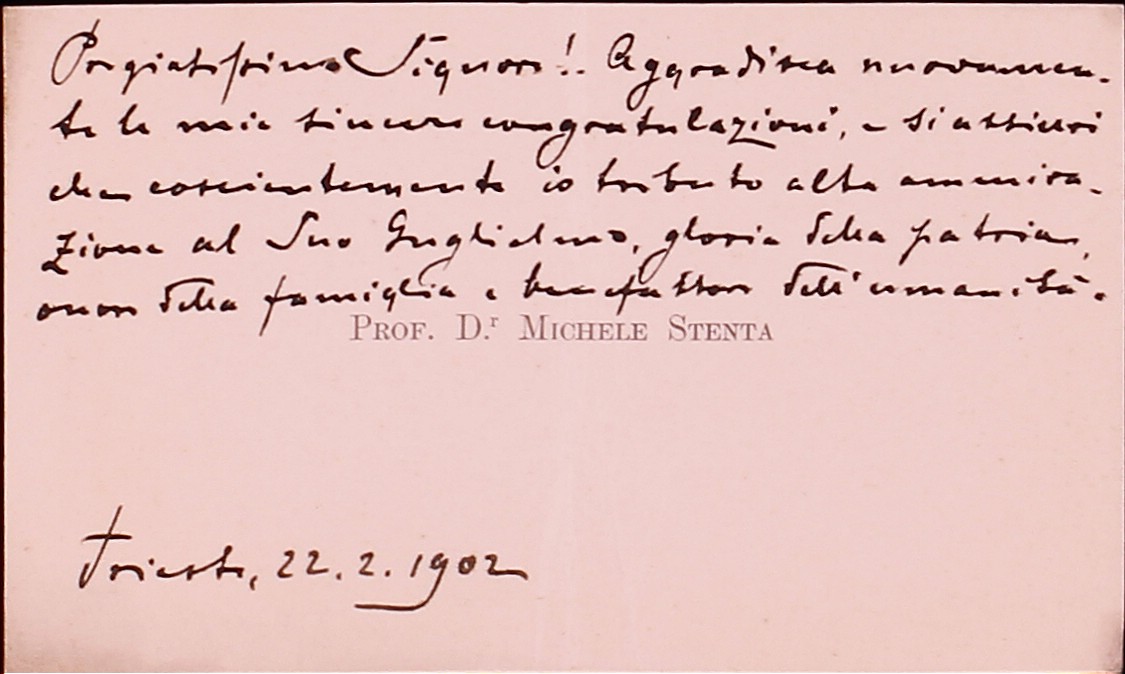 Pregiatissimo Signore!. Aggradisca nuovamen-
te le mie sincere congratulazioni, e si assicuri
che coscientemente io tributo alta ammira-
zione al Suo Guglielmo, gloria della patria,
onor della famiglia e benefattore dell'umanità.
PROF. D.r MICHELE STENTA
Trieste, 22.2.1902